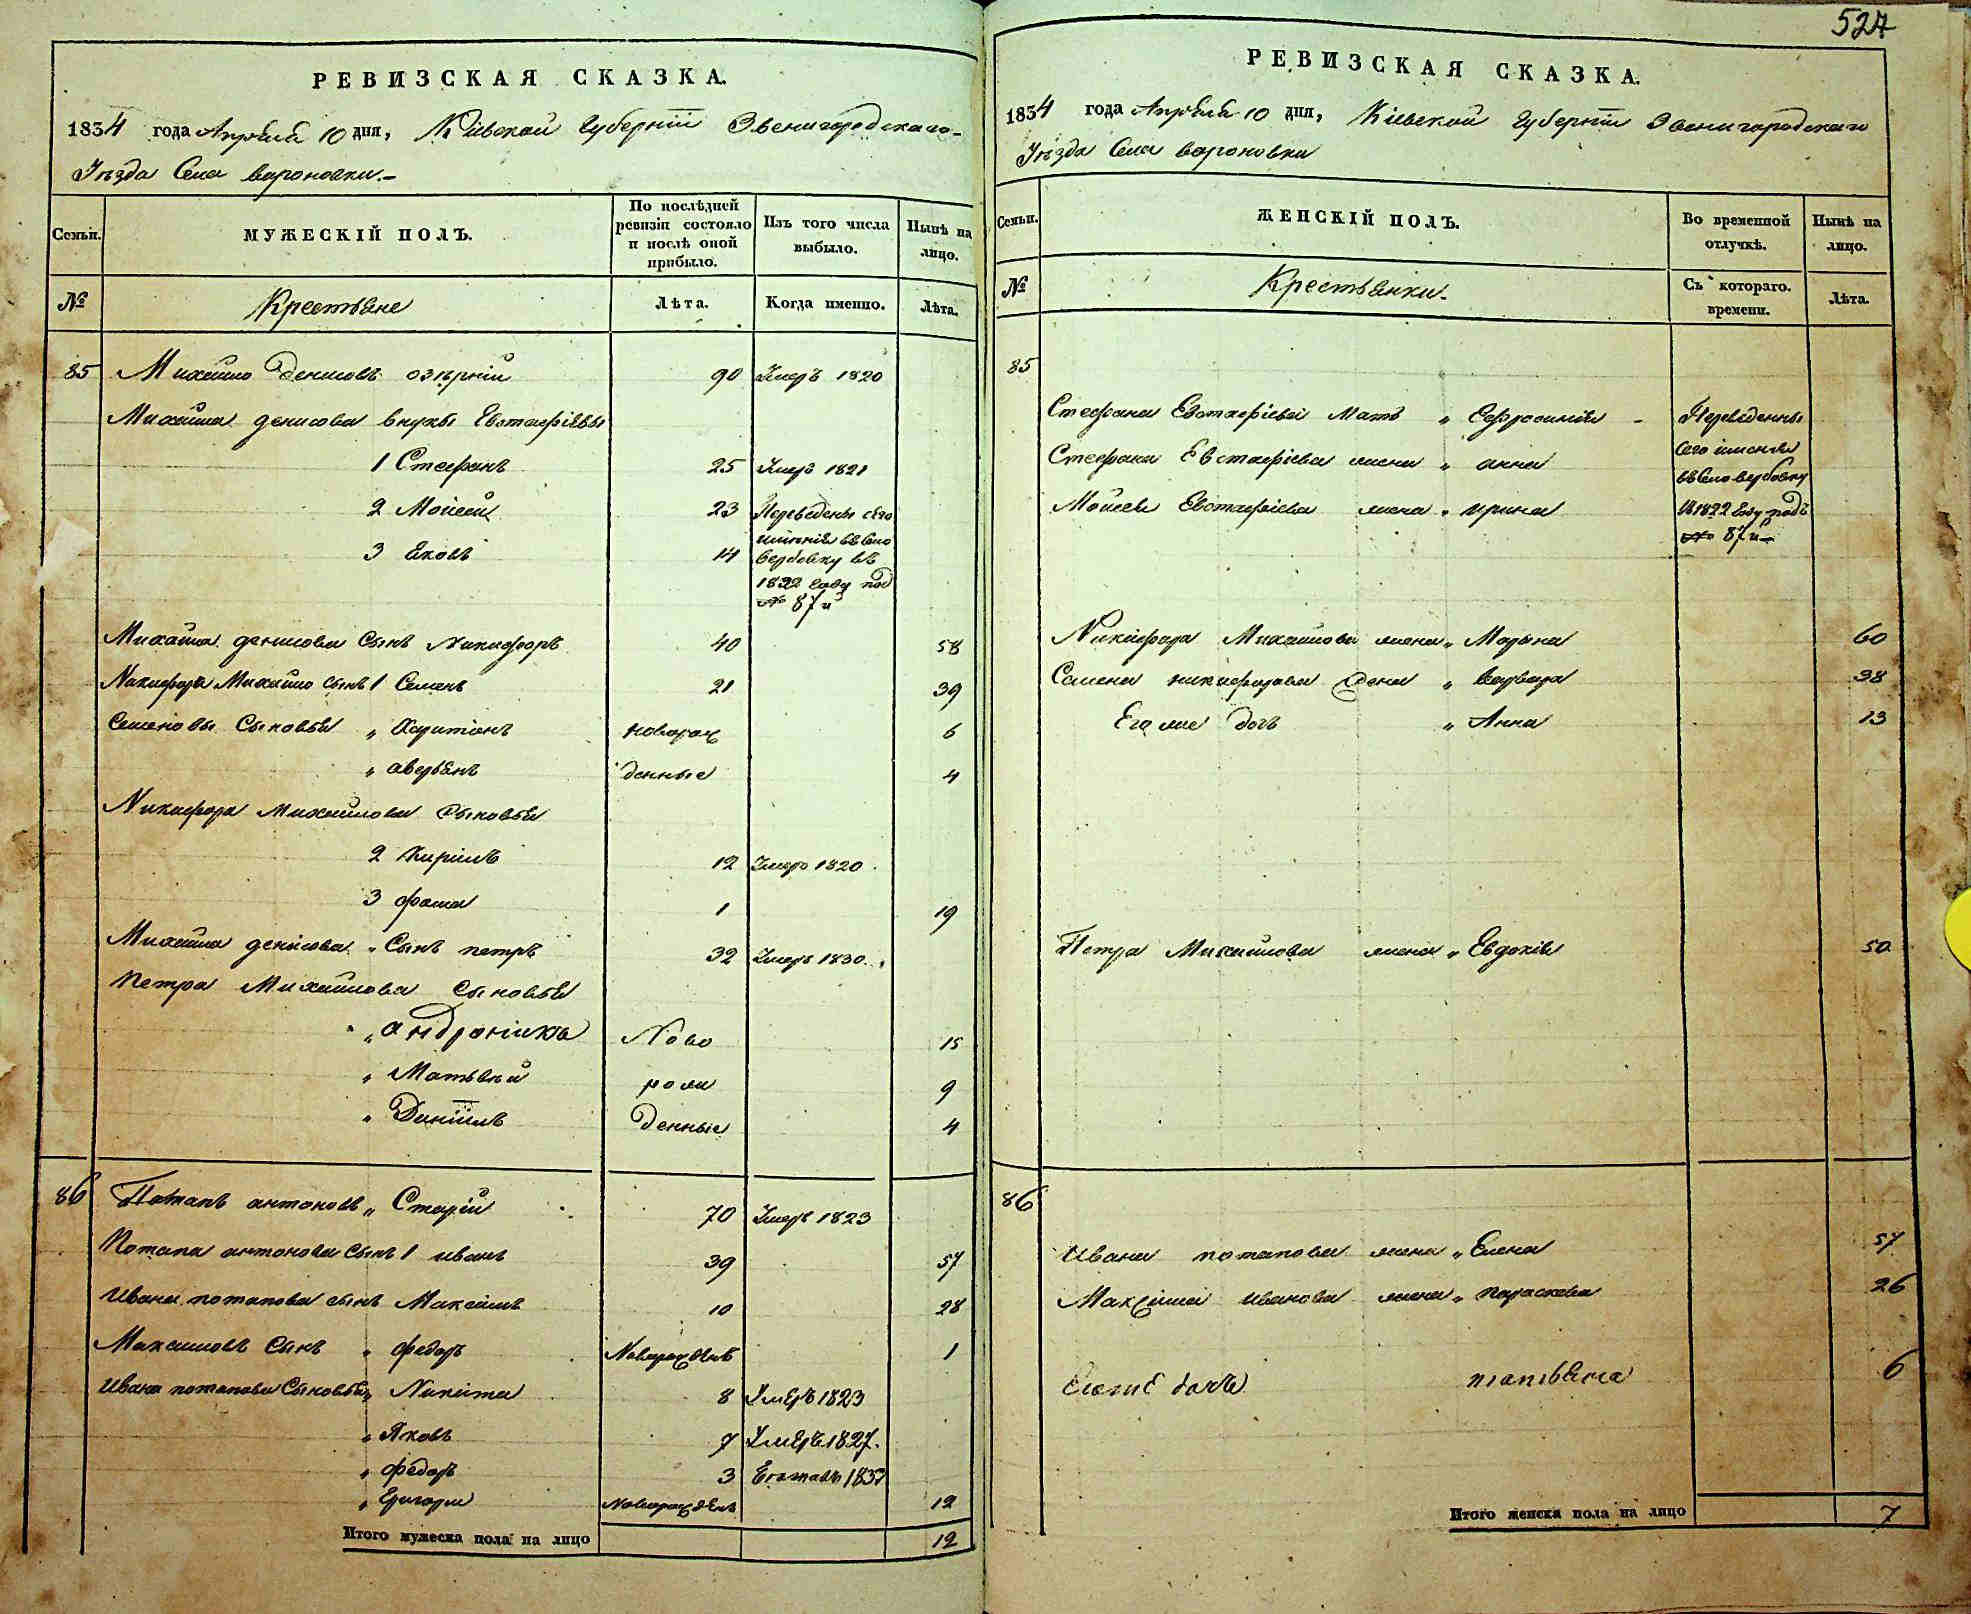 524
РЕВИЗСКАЯ СКАЗКА.
1834 года Апреля 10 дня, Кіевской Губерніи Звенигородскаго
Уезда Села вороновки.
Семьи.
МУЖЕСКІЙ ПОЛЪ.
По послѣдней ревизіи состояло и послѣ оной прибыло.
Изъ того числа выбыло.
Нынѣ на лицо.
№
Крестьяне
Лѣта.
Когда именно.
Лѣта.
85 Михайло денисовъ озѣрній 90 Умеръ 1820
Михайла денисова внуки Евстафіевы
1 Стефанъ 25 Умеръ 1821
2 Мойсей 23 Переведены сего
имѣнія въ село
3 Яковъ 14 вербовку въ
1822 году под
№ 87 й
Михайла денисова сынъ Никифоръ 40 58
Никифора Михайло сынъ 1 Семенъ 21 39
Семеновы сыновья „ Харитонъ новорож 6
„ аверьянъ денные 4
Никифора Михайлова сыновья
2 Кирилъ 12 Умеръ 1820
3 фома 1 19
Михайла денисова „ Сынъ петръ 32 Умеръ 1830.
Петра Михайлова сыновья
„ андроникъ Ново 15
„ Матвѣй рож 9
„ Даніилъ денные 4
86 Потапъ антоновъ „ Старій 70 Умеръ 1823
Потапа антонова сынъ 1 иванъ 39 57
Ивана потапова сынъ Максимъ 10 28
Максимовъ сынъ „ федоръ Новорожденъ 1
Ивана потапова Сыновья „ Никита 8 Умеръ 1823
„ Яковъ 7 Умеръ 1827.
„ федоръ 3
„ Григори 12
Итого мужеска пола на лицо 12
РЕВИЗСКАЯ СКАЗКА.
1834 года Апреля 10 дня, Кіевской Губерніи Звенигородскаго
Уезда Села вороновки
Семьи.
ЖЕНСКІЙ ПОЛЪ.
Во временной отлучкѣ.
Нынѣ на лицо.
№
Крестьянки.
Съ котораго времени.
Лѣта.
85
Стефана Евстафіева Мать „ Ефросинія Переведенны
сего имѣнія
Стефана Евстафіева жена „ анна въ село вербовку
Мойсея Евстафіева жена „ ирина въ 1822 году подъ
№ 87 й
Никифора Михайлова жена „ Матрона 60
Семена никифорова жена „ варвара 38
Его же дочь „ Анна 13
Петра Михайлова жена „ Евдокія 50
86
Ивана потапова жена „ Елена 57
Максима иванова жена „ параскева 26
дочь 6
Итого женска пола на лицо 7